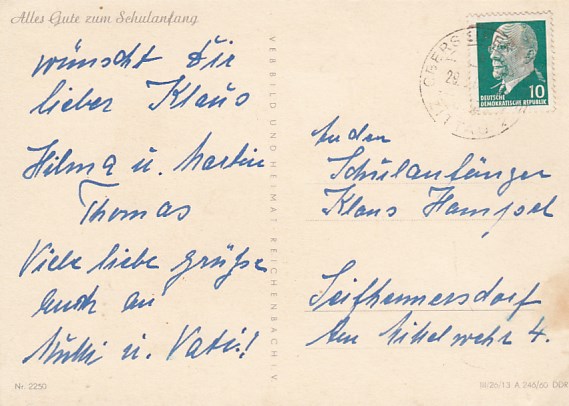 Alles Gute zum Schulanfang
wünscht Dir
lieber Klaus
Hilma u. Martin
Thomas
Viele liebe Grüße
auch an
Mutti u. Vati!
Nr. 2250
VERBILD UND HEIMAT REICHENBACH i. V
DEUTSCHE
DEMOKRATISCHE REPUBLIK
10
An den
Schulanfänger
Klaus Hampel
Seifhennersdorf
Am Mittelwehr 4.
III/26/13 A 246/60 DDR